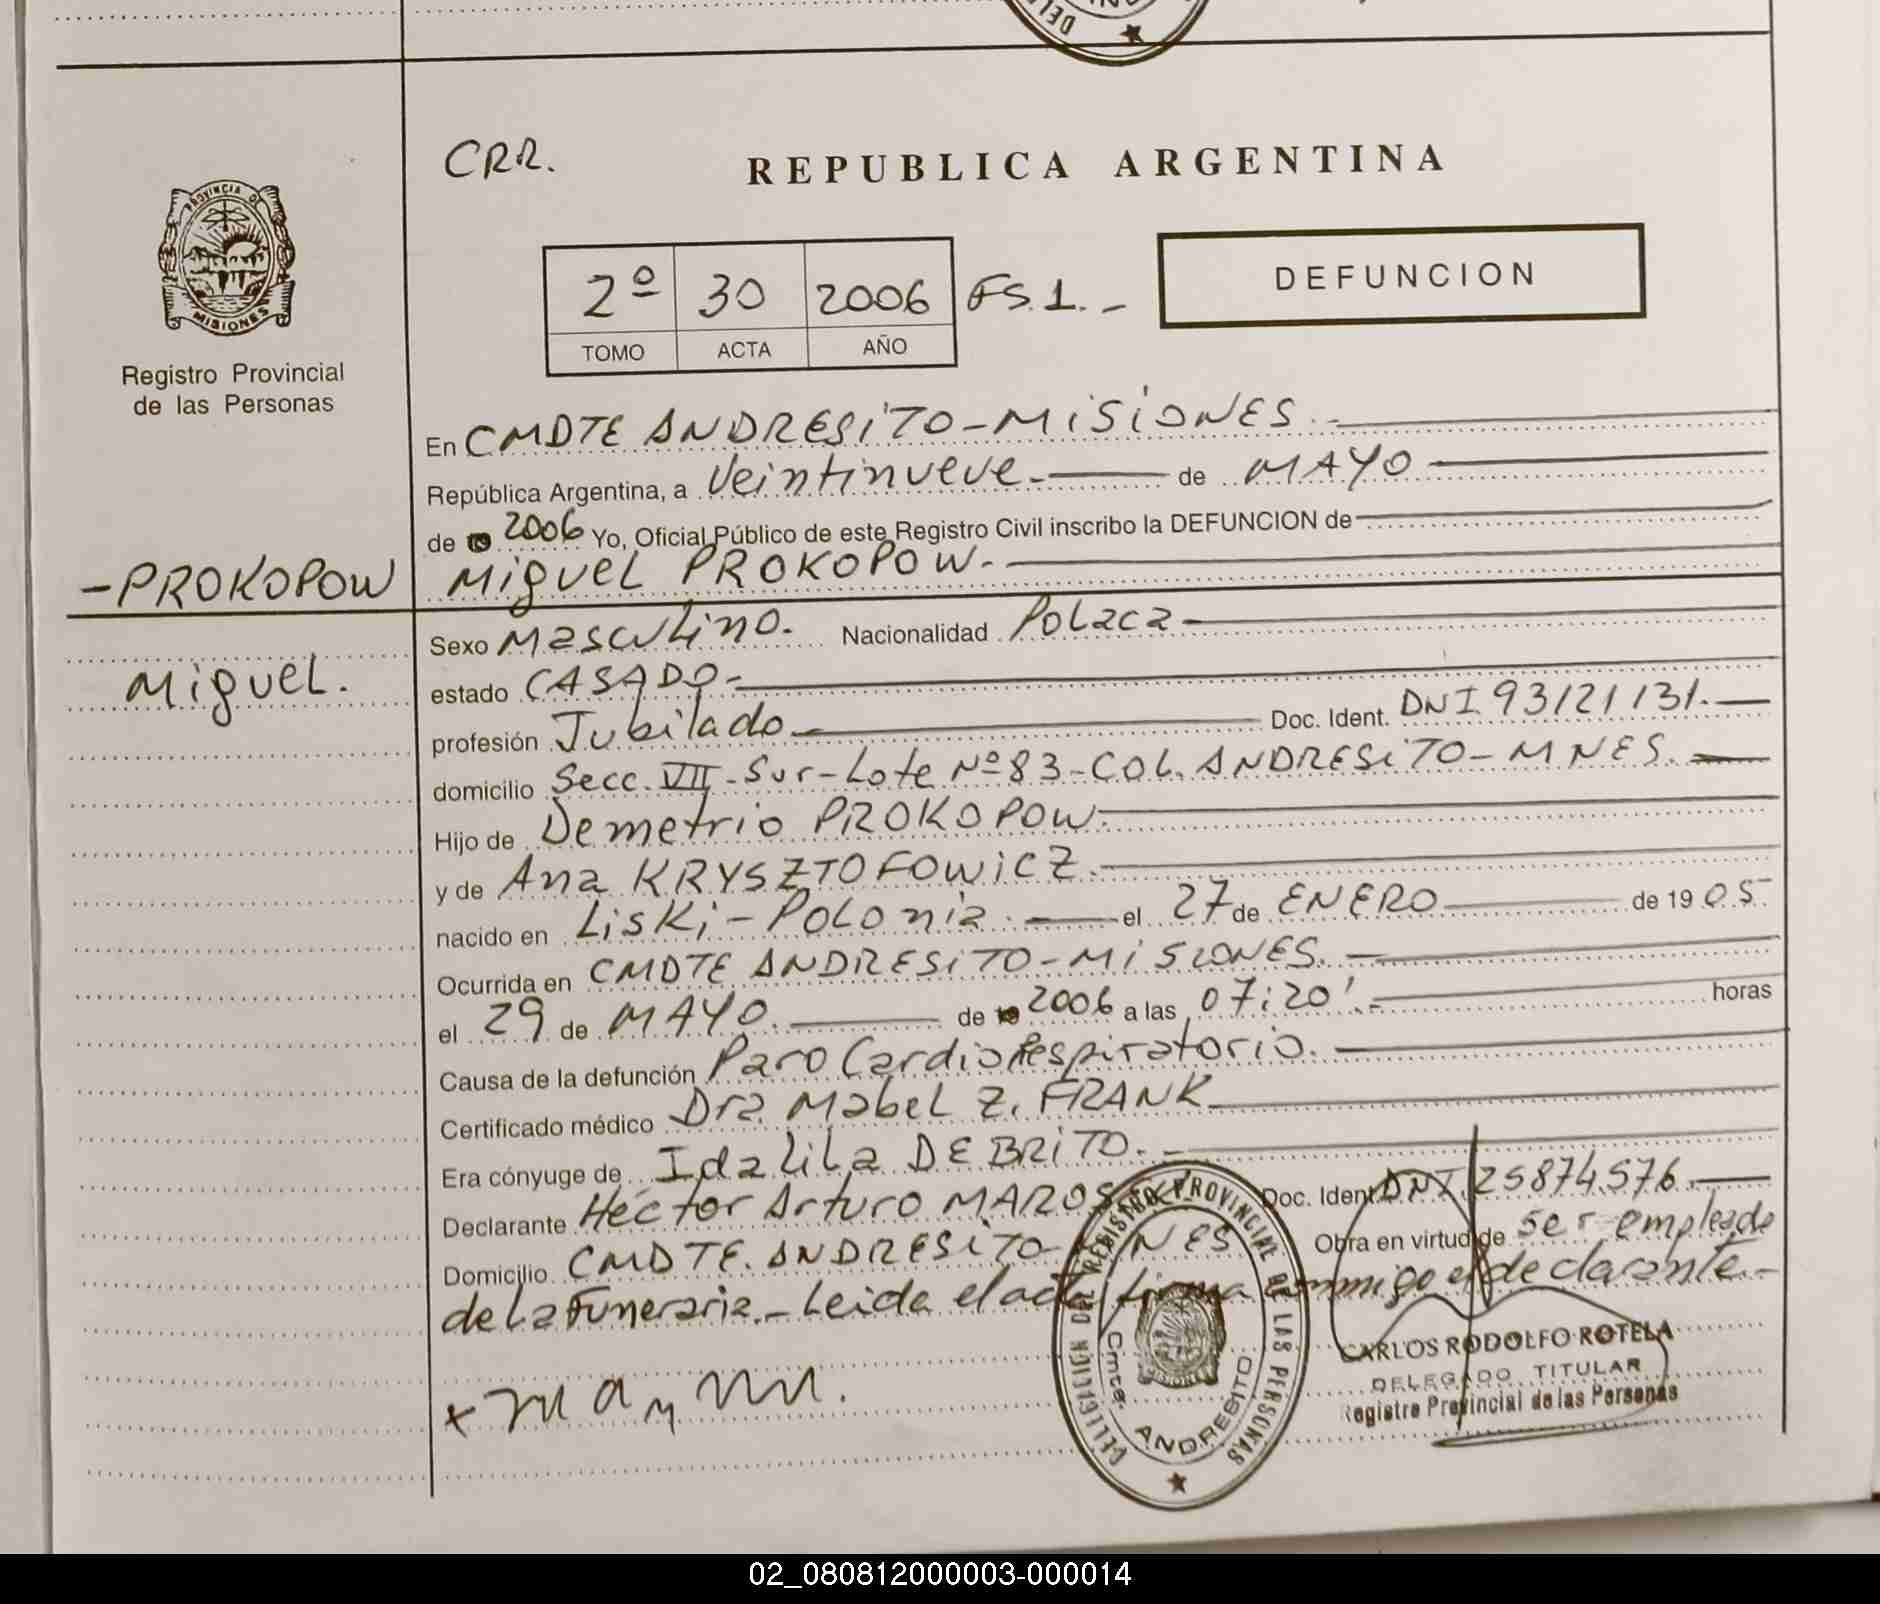 CRR.
REPUBLICA ARGENTINA
PROVINCIA DE
MISIONES
Registro Provincial
de las Personas
2º 30 2006 FS.1.-
TOMO ACTA AÑO
DEFUNCION
En CMDTE ANDRESITO-MISIONES.
República Argentina, a Veintinueve.- de MAYO
de 2006 Yo, Oficial Público de este Registro Civil inscribo la DEFUNCION de
-PROKOPOW
Miguel PROKOPOW.-
Miguel.
Sexo Masculino. Nacionalidad Polaca-
estado CASADO-
profesión Jubilado Doc. Ident. DNI 93121131.-
domicilio Secc. VII-Sur-Lote Nº83-COL. ANDRESITO-MNES.
Hijo de Demetrio PROKOPOW-
y de Ana KRYSZTOFOWICZ.-
nacido en Liski-Polonia.- el 27 de ENERO de 1905
Ocurrida en CMDTE ANDRESITO-MISIONES.-
el 29 de MAYO. de 2006 a las 07:20'.- horas
Causa de la defunción Paro CardioRespiratorio.-
Certificado médico Dra. Mabel Z. FRANK
Era cónyuge de Idalila DE BRITO.-
Declarante Héctor Arturo MAROS Doc. Ident. DNI.25874.576.-
Domicilio CMDTE. ANDRESITO-MNES Obra en virtud de ser empleado
de la Funeraria.-Leida el acta firma conmigo el declarante.-
DELEGACION DEL REGISTRO PROVINCIAL DE LAS PERSONAS
Cmte. ANDRESITO
CARLOS RODOLFO ROTELA
DELEGADO TITULAR
Registro Provincial de las Personas
02_080812000003-000014